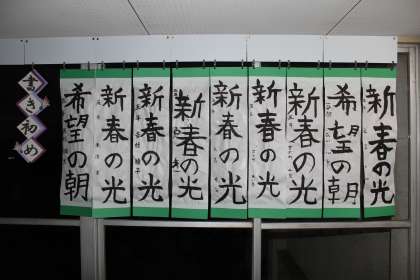 書き初め
希望の朝
新春の光
新春の光
新春の光
新春の光
新春の光
新春の光
希望の朝
新春の光